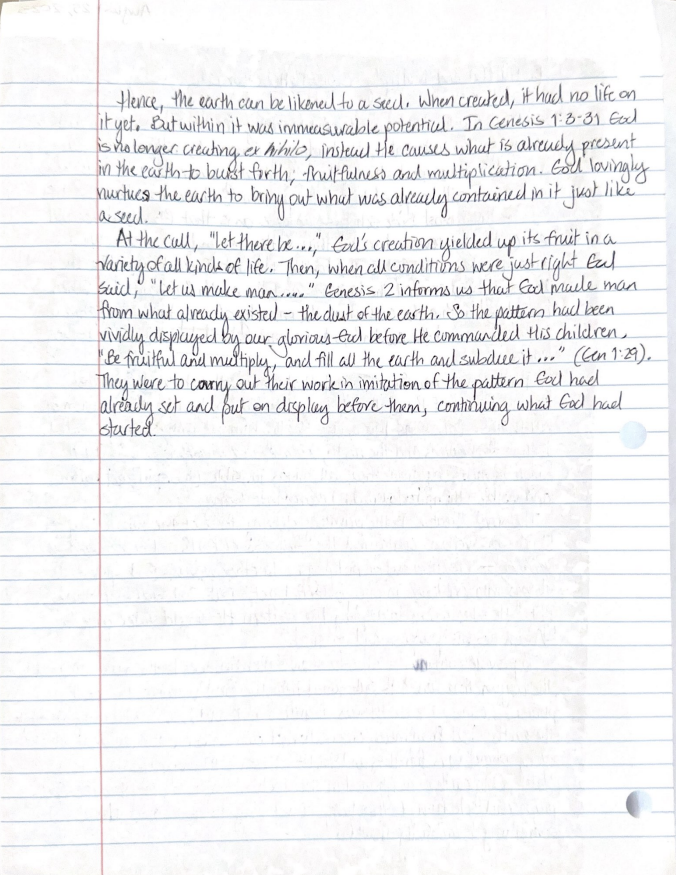 Hence, the earth can be likened to a seed. When created, it had no life on
it yet. But within it was immeasurable potential. In Genesis 1:3-31 God
is no longer creating ex nihilo, instead He causes what is already present
in the earth to burst forth; fruitfulness and multiplication. God lovingly
nurtures the earth to bring out what was already contained in it just like
a seed.
At the call, "let there be...," God's creation yielded up its fruit in a
variety of all kinds of life. Then, when all conditions were just right God
said, "Let us make man....." Genesis 2 informs us that God made man
from what already existed - the dust of the earth. So the pattern had been
vividly displayed by our glorious God before He commanded His children,
"Be fruitful and multiply, and fill all the earth and subdue it..." (Gen 1:29).
They were to carry out their work in imitation of the pattern God had
already set and put on display before them, continuing what God had
started.